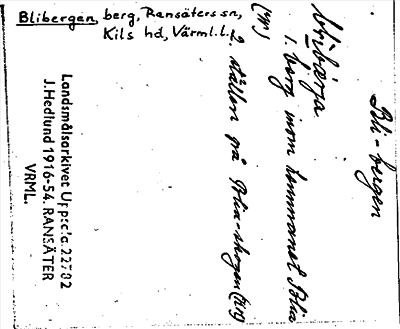 Blibergen, berg, Ransäters sn,
Kils hd, Värml. l.
Bli-bergen
1. berg inom hemmanet Blia
2. ställen på Blia-skogen
Landsmålsarkivet Uppsala 22782
J.Hedlund 1916-54. RANSÄTER
VRML.